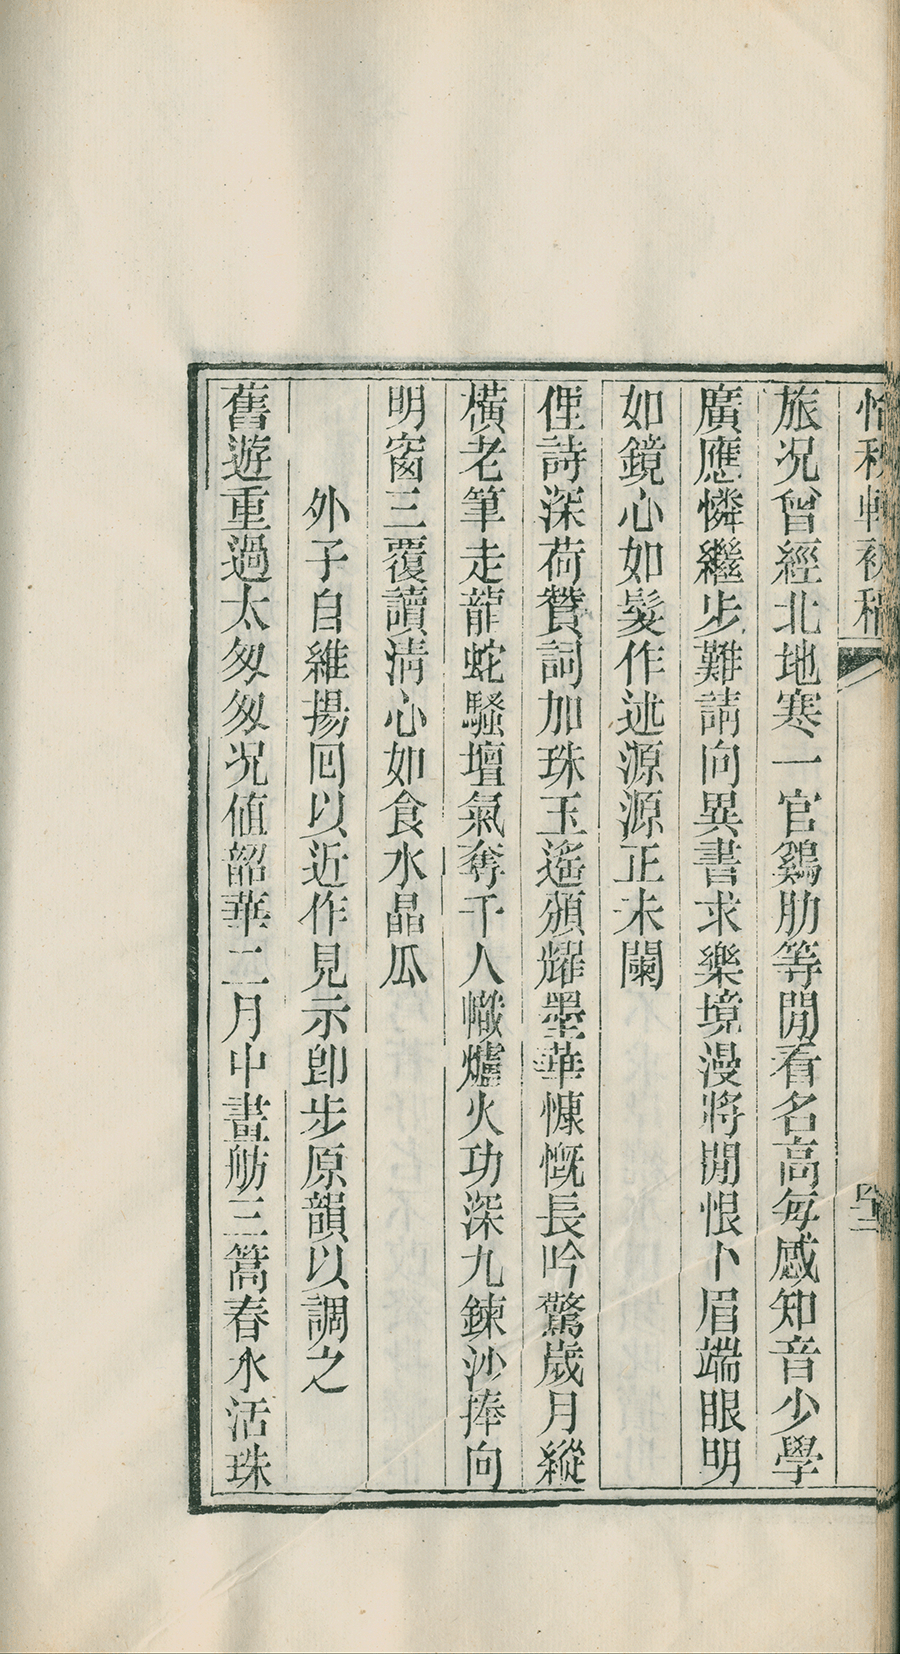 怡秋軒初稿
四十二
旅况曾經北地寒一官鷄肋等閒看名高每感知音少學
廣應憐繼步難請向異書求樂境漫將閒恨卜眉端眼明
如鏡心如髮作述源源正未闌
俚詩深荷贊詞加珠玉遙頒耀墨華慷慨長吟驚歲月縱
橫老筆走龍蛇騷壇氣奪千人幟爐火功深九鍊沙捧向
明窗三覆讀淸心如食水晶瓜
外子自維揚回以近作見示卽步原韻以調之
舊遊重過太匆匆况値韶華二月中畫舫三篙春水活珠